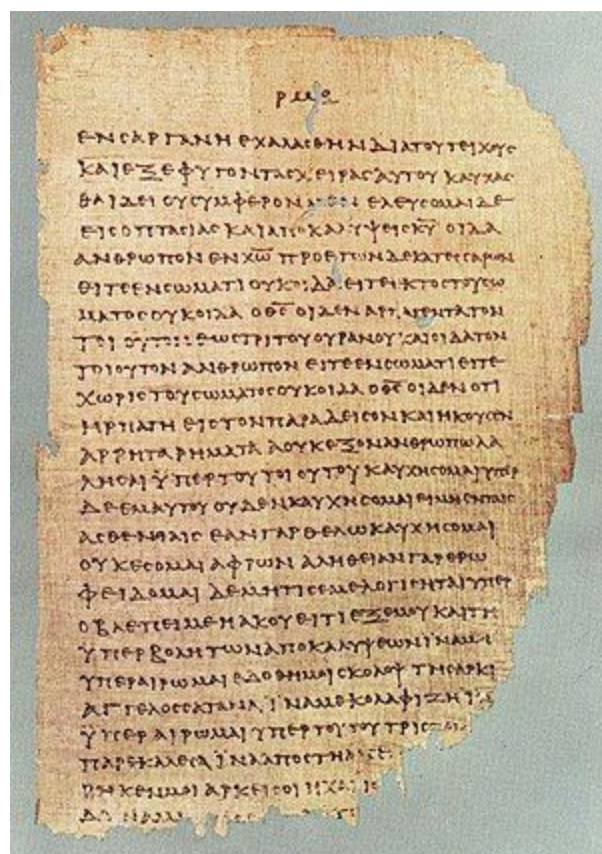 ΕΝϹΑΡΓΑΝΗ ΕΧΑΛΑϹΘΗΝ ΔΙΑΤΟΥΤΕΙΧΟΥϹ
ΚΑΙΕΞΕΦΥΓΟΝΤΑϹΧΕΙΡΑϹΑΥΤΟΥ ΚΑΥΧΑϹ
ΘΑΙΔΕΙ ΟΥϹΥΜΦΕΡΟΝ ΕΛΕΥϹΟΜΑΙΔΕ
ΕΙϹΟΠΤΑϹΙΑϹ ΚΑΙΑΠΟΚΑΛΥΨΕΙϹΚ̅Υ̅ ΟΙΔΑ
ΑΝΘΡΩΠΟΝ ΕΝΧ̅Ω̅ ΠΡΟΕΤΩΝΔΕΚΑΤΕϹϹΑΡΩΝ
ΕΙΤΕΕΝϹΩΜΑΤΙ ΟΥΚΟΙΔΑ ΕΙΤΕΕΚΤΟϹΤΟΥϹΩ
ΜΑΤΟϹΟΥΚΟΙΔΑ ΟΘ̅Ϲ̅ ΟΙΔΕΝ ΑΡΠΑΓΕΝΤΑΤΟΝ
ΤΟΙΟΥΤΟΝ ΕΩϹΤΡΙΤΟΥΟΥΡΑΝΟΥ ΚΑΙΟΙΔΑΤΟΝ
ΤΟΙΟΥΤΟΝ ΑΝΘΡΩΠΟΝ ΕΙΤΕΕΝϹΩΜΑΤΙ ΕΙΤΕ
ΧΩΡΙϹΤΟΥϹΩΜΑΤΟϹΟΥΚΟΙΔΑ ΟΘ̅Ϲ̅ ΟΙΔΕΝ ΟΤΙ
ΗΡΠΑΓΗ ΕΙϹΤΟΝΠΑΡΑΔΕΙϹΟΝ ΚΑΙΗΚΟΥϹΕΝ
ΑΡΡΗΤΑΡΗΜΑΤΑ ΑΟΥΚΕΞΟΝΑΝΘΡΩΠΩΛΑ
ΛΗϹΑΙ ΫΠΕΡΤΟΥΤΟΙΟΥΤΟΥ ΚΑΥΧΗϹΟΜΑΙΥΠΕΡ
ΔΕΕΜΑΥΤΟΥ ΟΥΔΕΝΚΑΥΧΗϹΟΜΑΙ ΕΙΜΗΕΝΤΑΙϹ
ΑϹΘΕΝΙΑΙϹ ΕΑΝΓΑΡΘΕΛΩΚΑΥΧΗϹΟΜΑΙ
ΟΥΚΕϹΟΜΑΙ ΑΦΡΩΝ ΑΛΗΘΕΙΑΝΓΑΡΕΡΩ
ΦΕΙΔΟΜΑΙ ΔΕΜΗΤΙϹΕΜΕΛΟΓΙϹΗΤΑΙΥΠΕΡ
ΟΒΛΕΠΕΙΜΕΗΑΚΟΥΕΙΤΙΕΞΕΜΟΥ ΚΑΙΤΗ
ΫΠΕΡΒΟΛΗΤΩΝΑΠΟΚΑΛΥΨΕΩΝΪΝΑΜΗ
ΥΠΕΡΑΙΡΩΜΑΙ ΕΔΟΘΗΜΟΙϹΚΟΛΟΨ ΤΗϹΑΡΚΙ
ΑΓΓΕΛΟϹϹΑΤΑΝΑ ΪΝΑΜΕΚΟΛΑΦΙΖΗ ΪΝΑ
ΫΠΕΡΑΙΡΩΜΑΙ ΥΠΕΡΤΟΥΤΟΥ ΤΡΙϹ
ΠΑΡΕΚΑΛΕϹΑ ΪΝΑΑΠΟϹΤΗ
ΡΗΚΕΝΜΟΙ ΑΡΚΕΙϹΟΙ ΗΧΑΡΙϹ